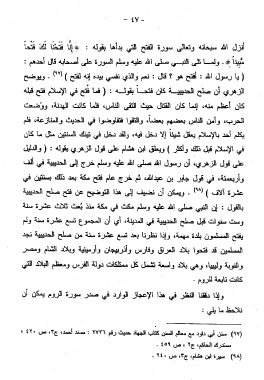 - ٤٧ -
أنزل الله سبحانه وتعالى سورة الفتح التي بدأها بقوله : ﴿ إِنَّا فَتَحْنَا لَكَ فَتْحًا
مُّبِينًا ﴾ . ولما تلا النبي صلى الله عليه وسلم السورة على أصحابه قال أحدهم :
( يا رسول الله : أفتح هو ؟ قال : نعم والذي نفسي بيده إنه لفتح ) . ويوضح
الزهري أن صلح الحديبية كان فتحاً بقوله : « فما فتح في الإسلام فتح قبله
كان أعظم منه، إنما كان القتال حيث التقى الناس، فلما كانت الهدنة، ووضعت
الحرب، وأمن الناس بعضهم بعضاً، والتقوا فتفاوضوا في الحديث والمنازعة، فلم
يكلم أحد بالإسلام يعقل شيئاً إلا دخل فيه، ولقد دخل في تينك السنتين مثل ما كان
في الإسلام قبل ذلك وأكثر ) ويعلق ابن هشام على قول الزهري بقوله : ( والدليل
على قول الزهري، أن رسول الله صلى الله عليه وسلم خرج إلى الحديبية في ألف
وأربعمئة، في قول جابر بن عبدالله، ثم خرج عام فتح مكة بعد ذلك بسنتين في
عشرة آلاف ) (٩٨) . ويمكن أن نضيف إلى هذا التوضيح عن فتح صلح الحديبية
بالقول : إن النبي صلى الله عليه وسلم مكث في مكة منذ بُعث ثلاث عشرة سنة
وست سنوات قبل صلح الحديبية في المدينة، أي أن المجموع تسع عشرة سنة ولم
يفتح المسلمون بلدة مهمة، وإذا نظرنا بعد تسع عشرة من صلح الحديبية نجد
المسلمين قد فتحوا بلاد العراق وفارس وأذربيجان وأرمينية وبلاد الشام ومصر
والنوبة وليبيا، وهي بلاد واسعة تشمل كل ممتلكات دولة الفرس ومعظم البلاد التي
كانت تابعة للروم .
وإذا دققنا النظر في هذا الإعجاز الوارد في صدر سورة الروم يمكن أن
نلاحظ ما يلي :
(٩٧) سنن أبي داود مع معالم السنن كتاب الجهاد حديث رقم ٢٧٣٦ : مسند أحمد، ج٣، ص ٤٢٠ ،
مستدرك الحاكم، ج ٢ ، ص ٤٥٩ .
(٩٨) سيرة ابن هشام، ج٣، ص ٢٤٠ .